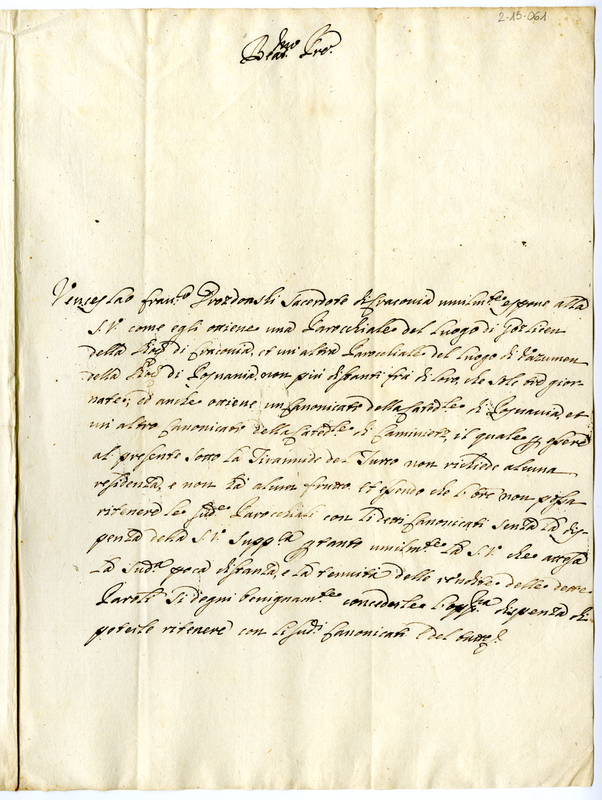 2-15-061
Beat.mo Pre.
Venceslao Fran.co Sacerdote di Cracovia umilm.te espone alla
S.V. come egli ottiene una Parocchiale del luogo di
della Dioc. di Cracovia, et un'altra Parochiale del luogo di
della Dioc. di Posnania, non più distanti fra di loro, che sole tre gior-
nate; et anche ottiene un Canonicato della Cated.le di Posnania, et
un altro Canonicato della Cated.le di Caminietz, il quale p essere
al presente sotto la Tirannide del Turco non richiede alcuna
residenza, e non dà alcun frutto. Et essendo che l'Ore non possa
ritenere le sud.e Parocchiali con li detti Canonicati senza la dis-
penza della S.V. Supp.ca p tanto umilm.te la S.V. che attesa
la sud.a poca distanza, e la tenuità delle rendite delle dette
Paroli si degni benignam.te concederle l'opp.na dispenza di
poterle ritenere con li sud.i Canonicati. Che del tutto